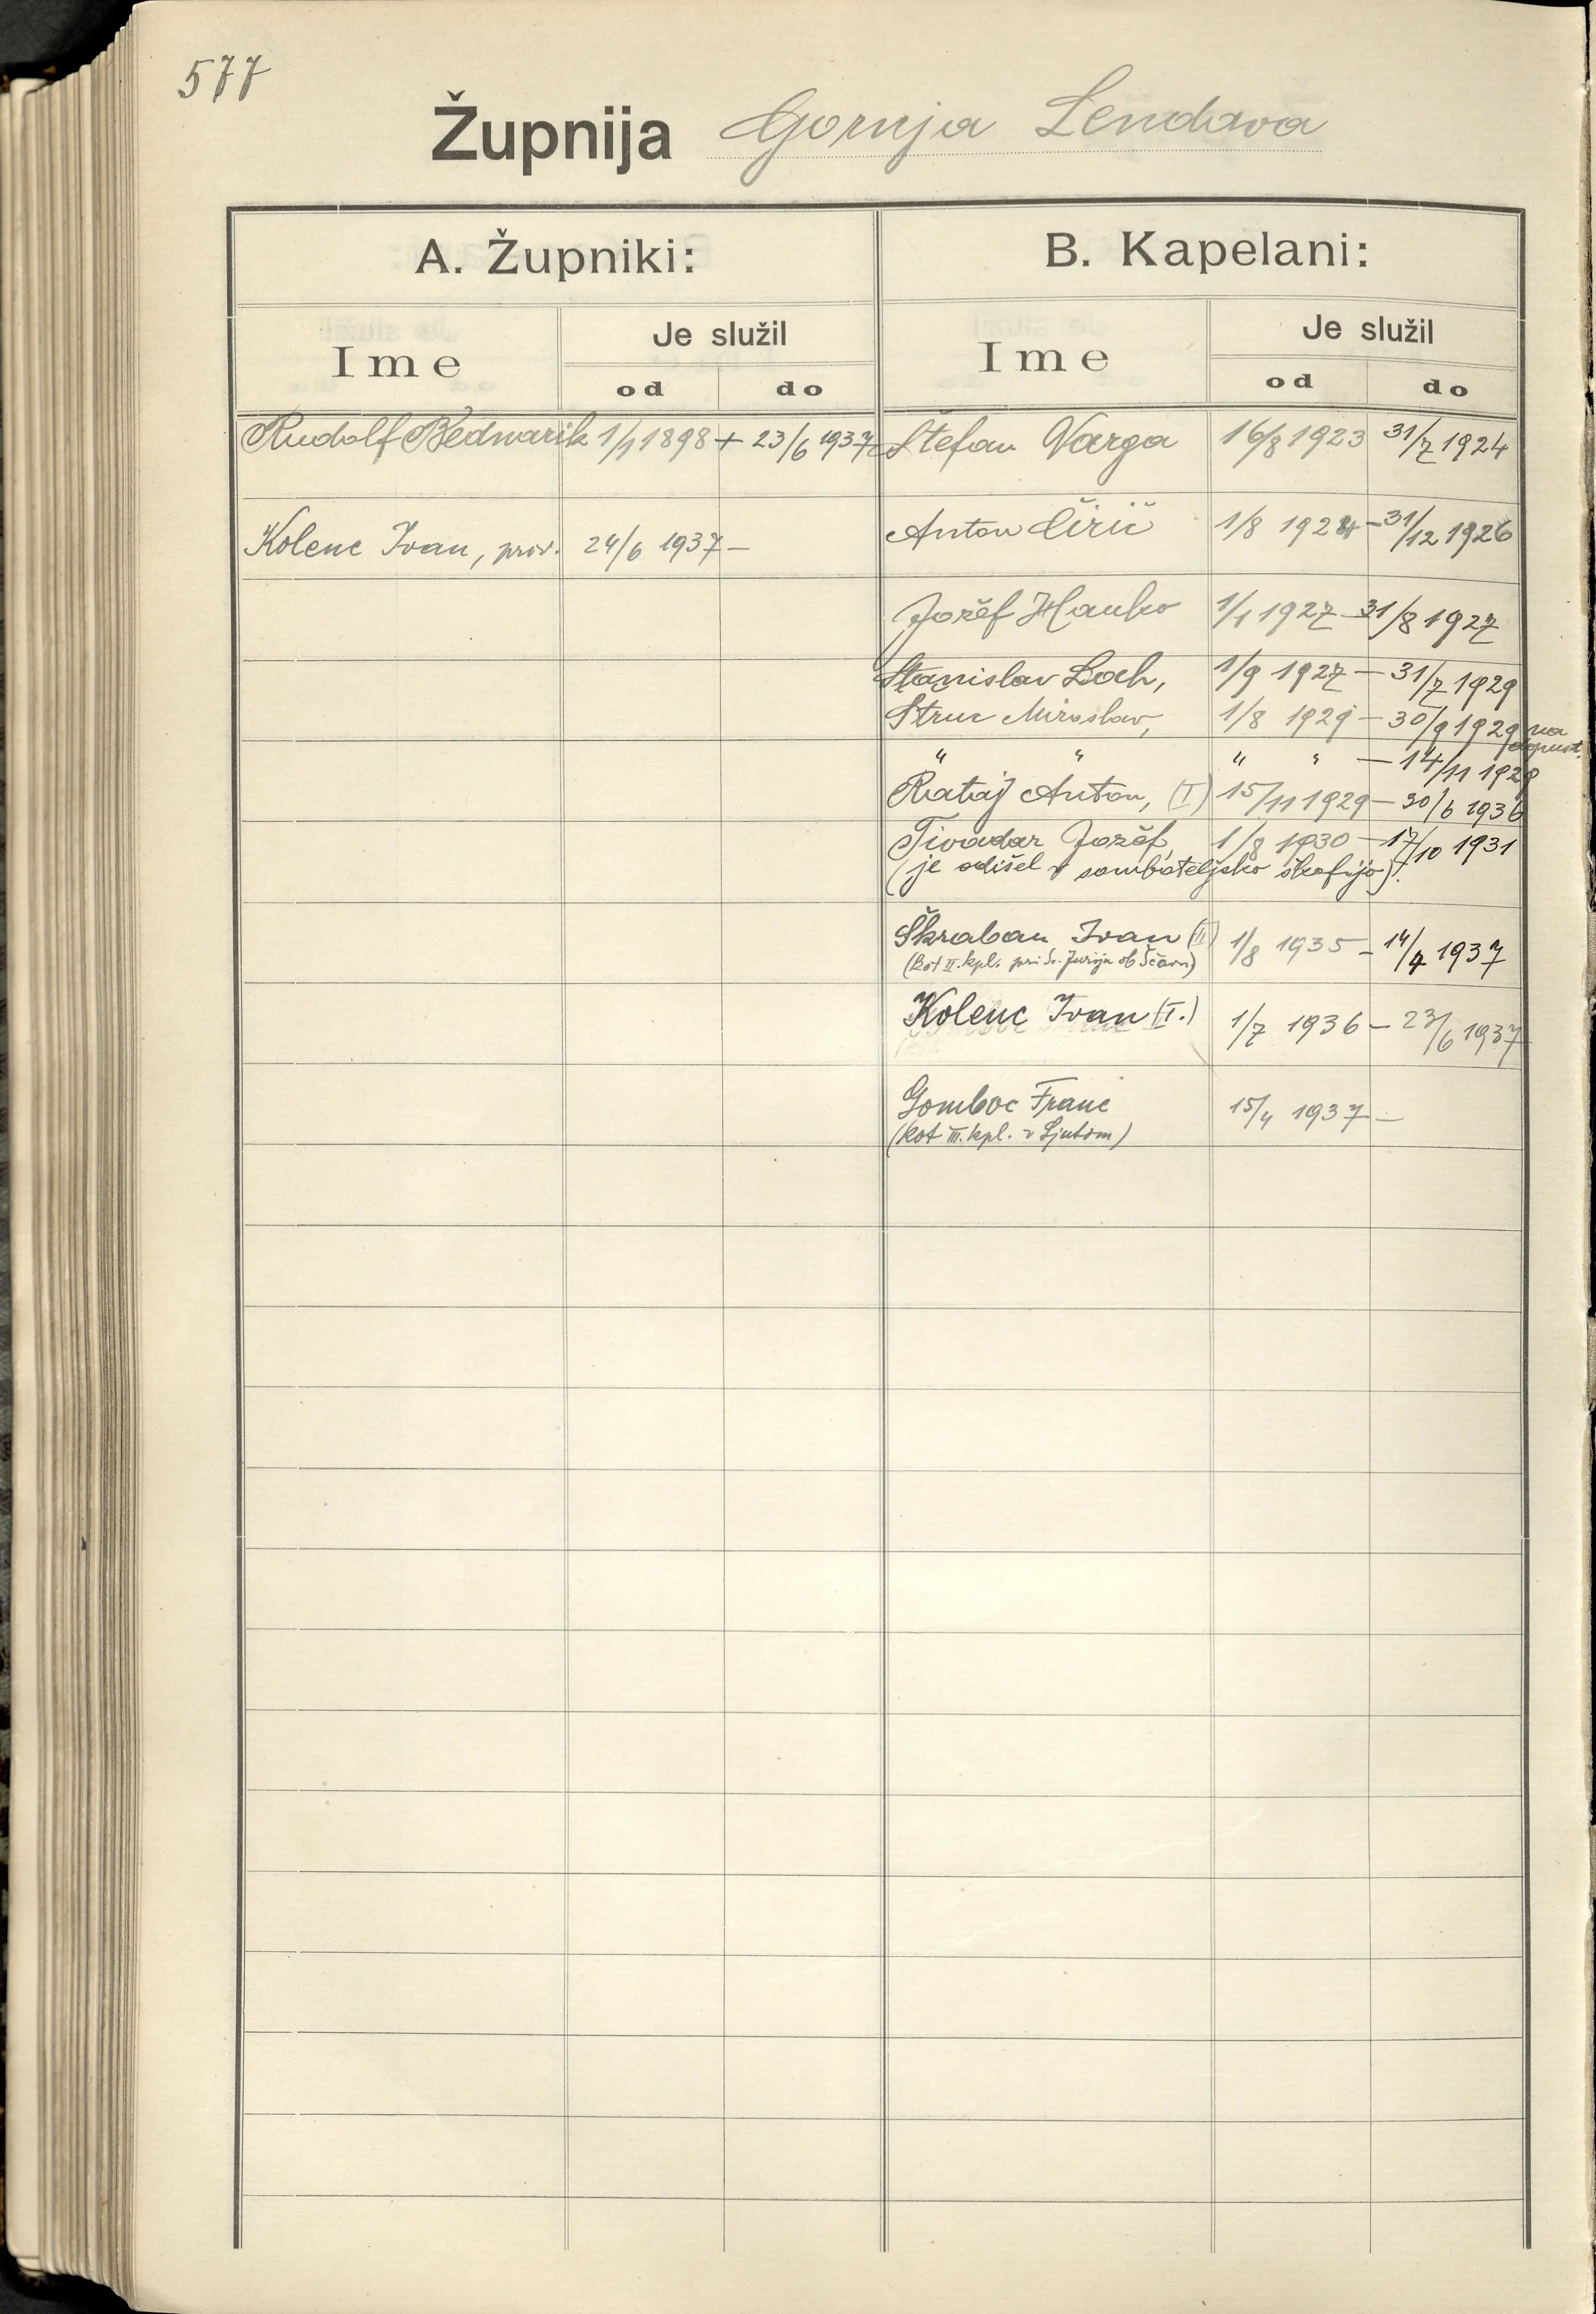 577
Župnija Gornja Lendava
A. Župniki:
Ime
Je služil
od do
Rudolf Bednarik 1/1 1898 + 23/6 1937
Kolenc Ivan, prov. 24/6 1937 –
B. Kapelani:
Ime
Je služil
od do
Štefan Varga 16/8 1923 31/7 1924
Anton Cirič 1/8 1924 – 31/12 1926
Jožef Hauko 1/1 1927 – 31/8 1927
Stanislav Loch, 1/9 1927 – 31/7 1929
Struc Miroslav, 1/8 1929 – 30/9 1929 na
dopust.
" " " " – 14/11 1929
Rataj Anton, (I) 15/11 1929 – 30/6 1936
Tivadar Jožef, 1/8 1930 – 17/10 1931
(je odišel v sombateljsko škofijo).
Škraban Ivan (II) 1/8 1935 – 14/4 1937
(kot II. kpl. pri Sv. Juriju ob Ščavn)
Kolenc Ivan (I.) 1/7 1936 – 23/6 1937
Gomboc Franc 15/4 1937 –
(kot III. kpl. v Ljutom)